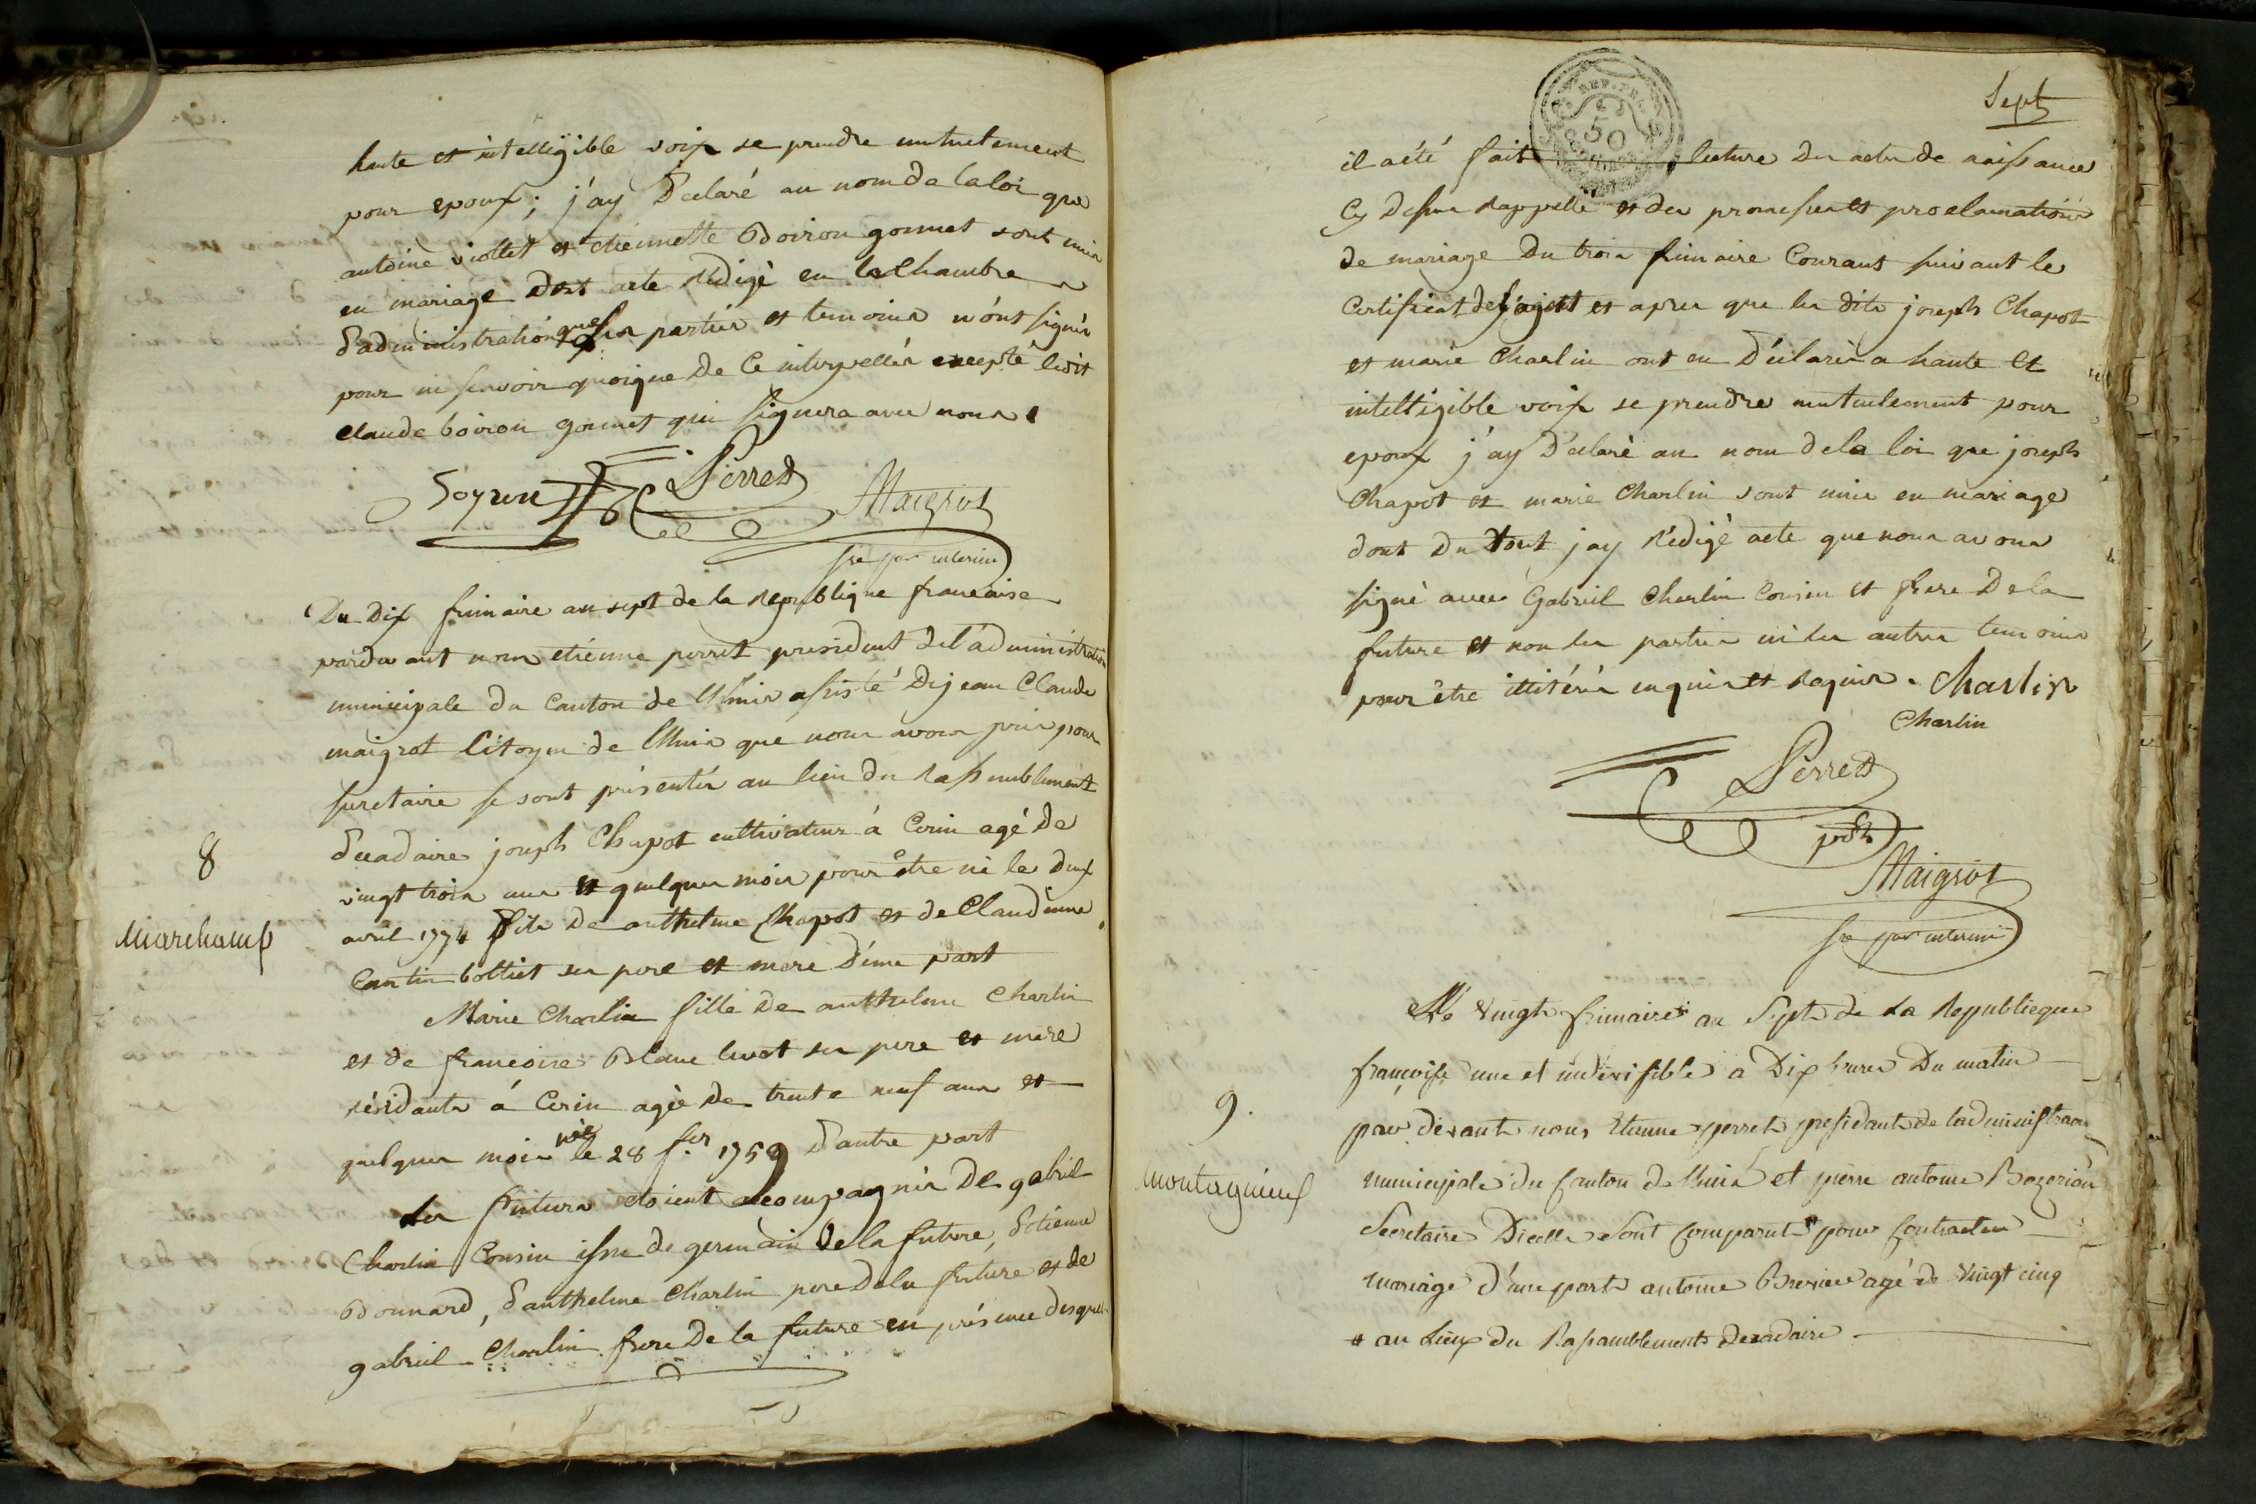 haute et intelligible voix se prendre mutuelement
pour epoux; j'ay Déclaré au nom de la loi que
antoine viollet et etiennette Boiron gonnet sont unis
en mariage dont acte Rédigé en la Chambre
d'administration que les parties et temoins n'ont signés
pour ne scavoir quoique de ce interpellés excepté ledit
claude boiron gonnet qui signera avec nous.
Perret
Maigrot
sre par interim
Du Dix frimaire an sept de la republique francaise
pardevant nous etienne perret president de l'administration
municipale du Canton de Lhuis assisté De jean Claude
maigrot Citoyen de Lhuis que nous avons pris pour
secretaire se sont présentés au lieu du Rassemblement
decadaire joseph Chapot cultivateur á Cerin agé de
8
vingt trois ans et quelques mois pour être né le deux
avril 1774 fils de anthelme Chapot et de Claudinne
Marchamp
Cantin bolliet ses pere et mere d'une part
Marie Charlin fille De anthelme Charlin
et de francoise Blanc ses pere et mere
résidants á Cerin agée De trente neuf ans et
quelques mois née le 28 1759 d'autre part
Les futurs etoient acompagnés De gabriel
Charlin Cousin issu de germain De la future, d'etienne
Bonnard, d'anthelme Charlin pere De la future et de
gabriel Charlin frere De la future en présence desquels
Sept
REP. FRA.
50
il a été fait lecture des actes de naissance
Cy Dessus Rappellé et des promesses et proclamations
de mariage Du trois frimaire Courant suivant le
Certificat de l'agent et apres que les dits joseph Chapot
et marie Charlin ont eu Déclarés a haute et
intelligible voix se prendre mutuelement pour
epoux j'ay Déclaré au nom de la loi que joseph
Chapot et marie Charlin sont unis en mariage
dont Du tout jay Rédigé acte que nous avons
signé avec Gabriel Charlin Cousin et frere De la
future et non les parties ni les autres temoins
pour être illitérés enquis et Requis. Charlin
Charlin
Perret
pdt
Maigrot
sre par interim
Le vingt frimaire an Sept de La Republicque
françoise une et indivisible a Dix heures Du matin
9.
par devant nous Etienne perret presidant de l'administraon
Montagnieux
municipale du Canton de Lhuis et pierre antoine Bozerian
Secretaire Dicelle Sont Comparut # pour Contracter
mariage d'une part antoine agé de vingt cinq
# au Lieux du Rassamblement Decadaire